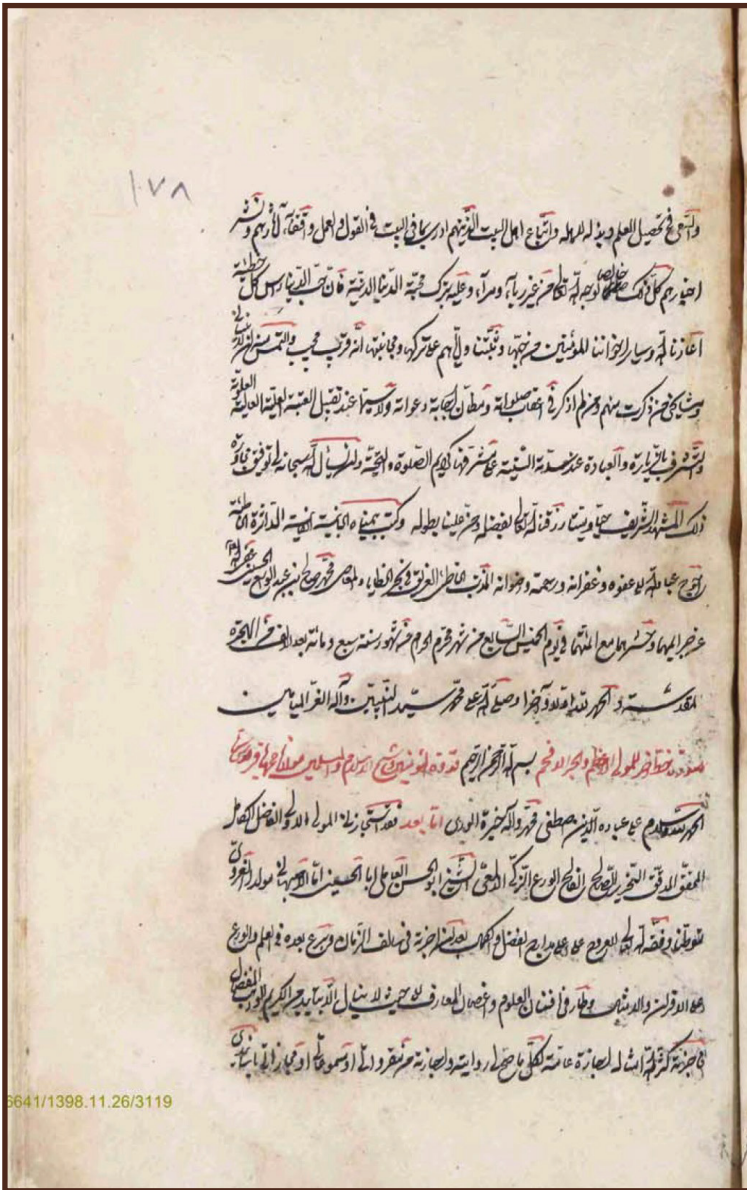 ١٠٧٨
والسعي في تحصيل العلم وبذله لاهله واتباع اهل البيت الذينهم ادرى بما في البيت في القول والعمل واقتفاء لآثارهم ونشر
اخبارهم كل ذلك خالصا لوجه الله تعالى من غير رياء ومراء وعليه بترك محبة الدنيا الدنية فان حب الدنيا رأس كل خطيئة
اعاذنا الله وساير اخواننا المؤمنين من حبها وثبتنا واياهم على تركها ومجانبتها انه قريب مجيب والتمس منه ان لا ينساني
ومشايخي من ذكرت منهم ومن لم اذكر في اعقاب صلواته ومظان اجابة دعواته ولا سيما عند تقبيل العتبة العلية العالية العلوية
والتشرف بالزيارة والعبادة عند سدته السنية على مشرفها كرايم الصلوة والتحية وان يسأل الله سبحانه لي توفيق مجاورة
ذلك المشهد الشريف حيا وميتا رزقنا الله تعالى بفضله ومن علينا بطوله وكتب بيمناه الجانية الفانية الداثرة الخاطئة
احوج عباد الله الى عفوه وغفرانه ورحمته ورضوانه المذنب الخاطئ الغريق في بحر الخطايا والمعاصي محمد صالح بن عبد الواسع الحسيني عفى الله
عن جرايمهما وحشرهما مع ائمتهما في يوم الخميس السابع من شهر محرم الحرام من شهور سنة سبع ومائة بعد الالف من الهجرة
المقدسة والحمد لله اولا وآخرا وصلى الله على محمد سيد النبيين وآله الغر الميامين
صورة خط آخر للمولى الاعظم والحبر الافخم بسم الله الرحمن الرحيم قدوة المؤمنين وشيخ الاسلام والمسلمين مولانا
الحمد لله وسلام على عباده الذين اصطفى محمد وآله خيرة الورى اما بعد فقد استجازني المولى الاولى الفاضل الكامل
المحقق المدقق النحرير الصالح الفالح الورع الزكي الالمعي الشيخ ابو الحسن العاملي ابا الحسيني اما الاصبهاني مولدا الغروي
متوطنا وفقه الله للعروج على اعلى مدارج الفضل والكمال بعد ان اجزته في سالف الزمان وبرع بعده في العلم والورع
على الاقران والامثال وطار في افنان العلوم واغصان المعارف الى حيث لا ينال الا بتأييد من الكريم الوهاب المفضال
فاجزته كثر الله امثاله اجازة عامة لكل ما صح لي روايته واجازته من مقرواتي او مسموعاتي او مجازاتي باسانيدي
6641/1398.11.26/3119